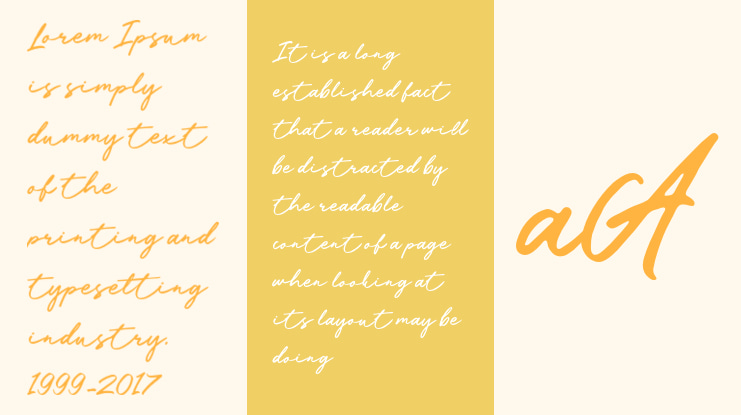 Lorem Ipsum
is simply
dummy text
of the
printing and
typesetting
industry.
1999-2017
It is a long
established fact
that a reader will
be distracted by
the readable
content of a page
when looking at
its layout may be
doing
aA